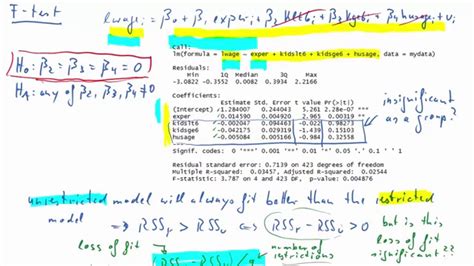 F-test
lwageᵢ = β₀ + β₁ experᵢ + β₂ kidslt6ᵢ + β₃ kidsge6ᵢ + β₄ husageᵢ + υᵢ
H₀: β₂ = β₃ = β₄ = 0
Hₐ: any of β₂, β₃, β₄ ≠ 0
Call:
lm(formula = lwage ~ exper + kidslt6 + kidsge6 + husage, data = mydata)
Residuals:
Min 1Q Median 3Q Max
-3.0822 -0.3552 0.0082 0.3934 2.2166
Coefficients:
Estimate Std. Error t value Pr(>|t|)
(Intercept) 1.284007 0.244043 5.261 2.28e-07 ***
exper 0.014590 0.004920 2.965 0.00319 **
kidslt6 -0.022 0.98273
kidsge6 -0.042175 0.029311 -1.439 0.15103
husage -0.984 0.32558
---
Signif. codes: 0 '***' 0.001 '**' 0.01 '*' 0.05 '.' 0.1 ' ' 1
Residual standard error: 0.7139 on 423 degrees of freedom
Multiple R-squared: 0.03457, Adjusted R-squared: 0.02544
F-statistic: 3.787 on 4 and 423 DF, p-value: 0.004876
insignificant
as a group?
unrestricted model will always fit better than the restricted
model
⇒ RSSᵣ > RSSᵤ ⇔ RSSᵣ - RSSᵤ > 0
but is this
loss of fit
significant??
loss of fit
number of
restrictions